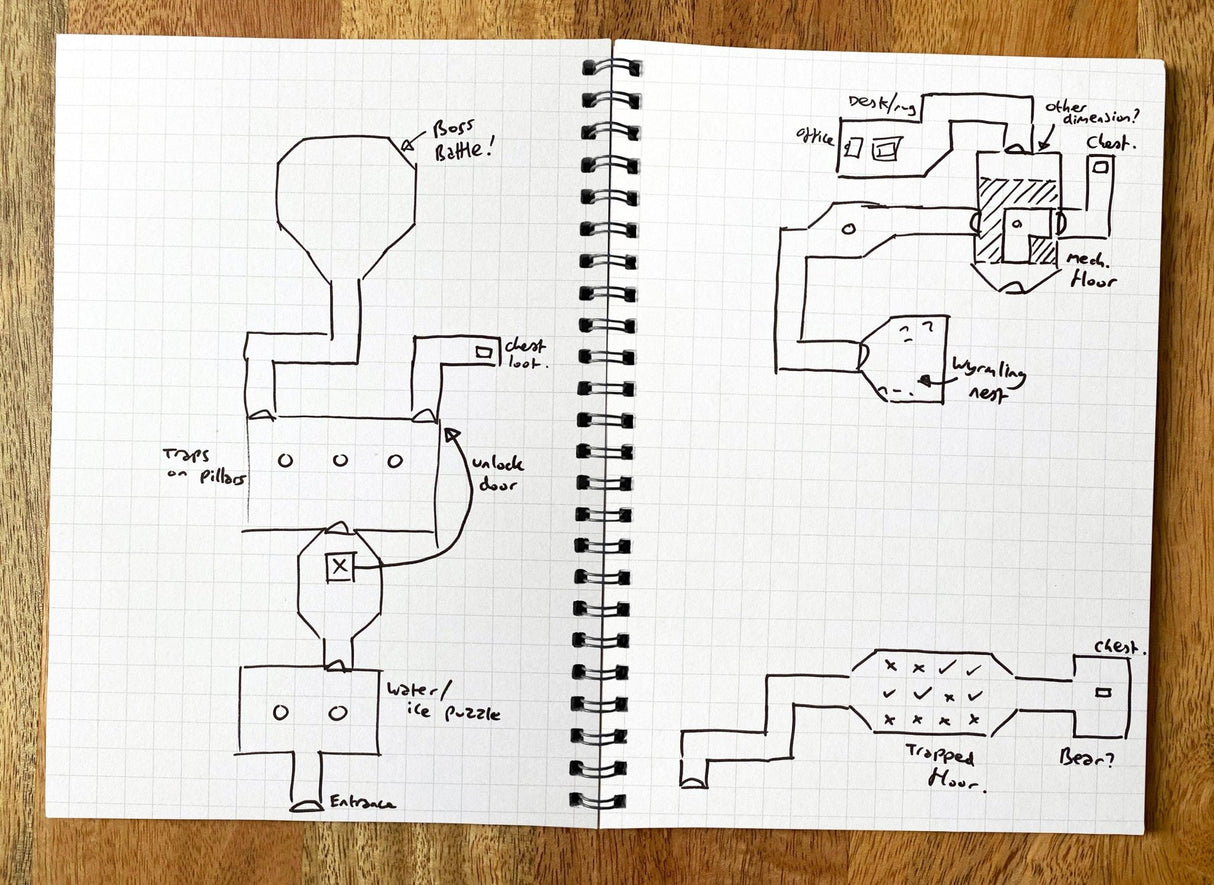 Boss
Battle!
chest
loot.
Traps
on pillars
unlock
door
X
Water/
ice puzzle
Entrance
Desk/rug
office
other
dimension?
Chest.
Mech.
floor
Wyrmling
nest
Chest.
x x ✓ ✓
✓ ✓ x ✓
x x x x
Trapped
floor.
Bear?